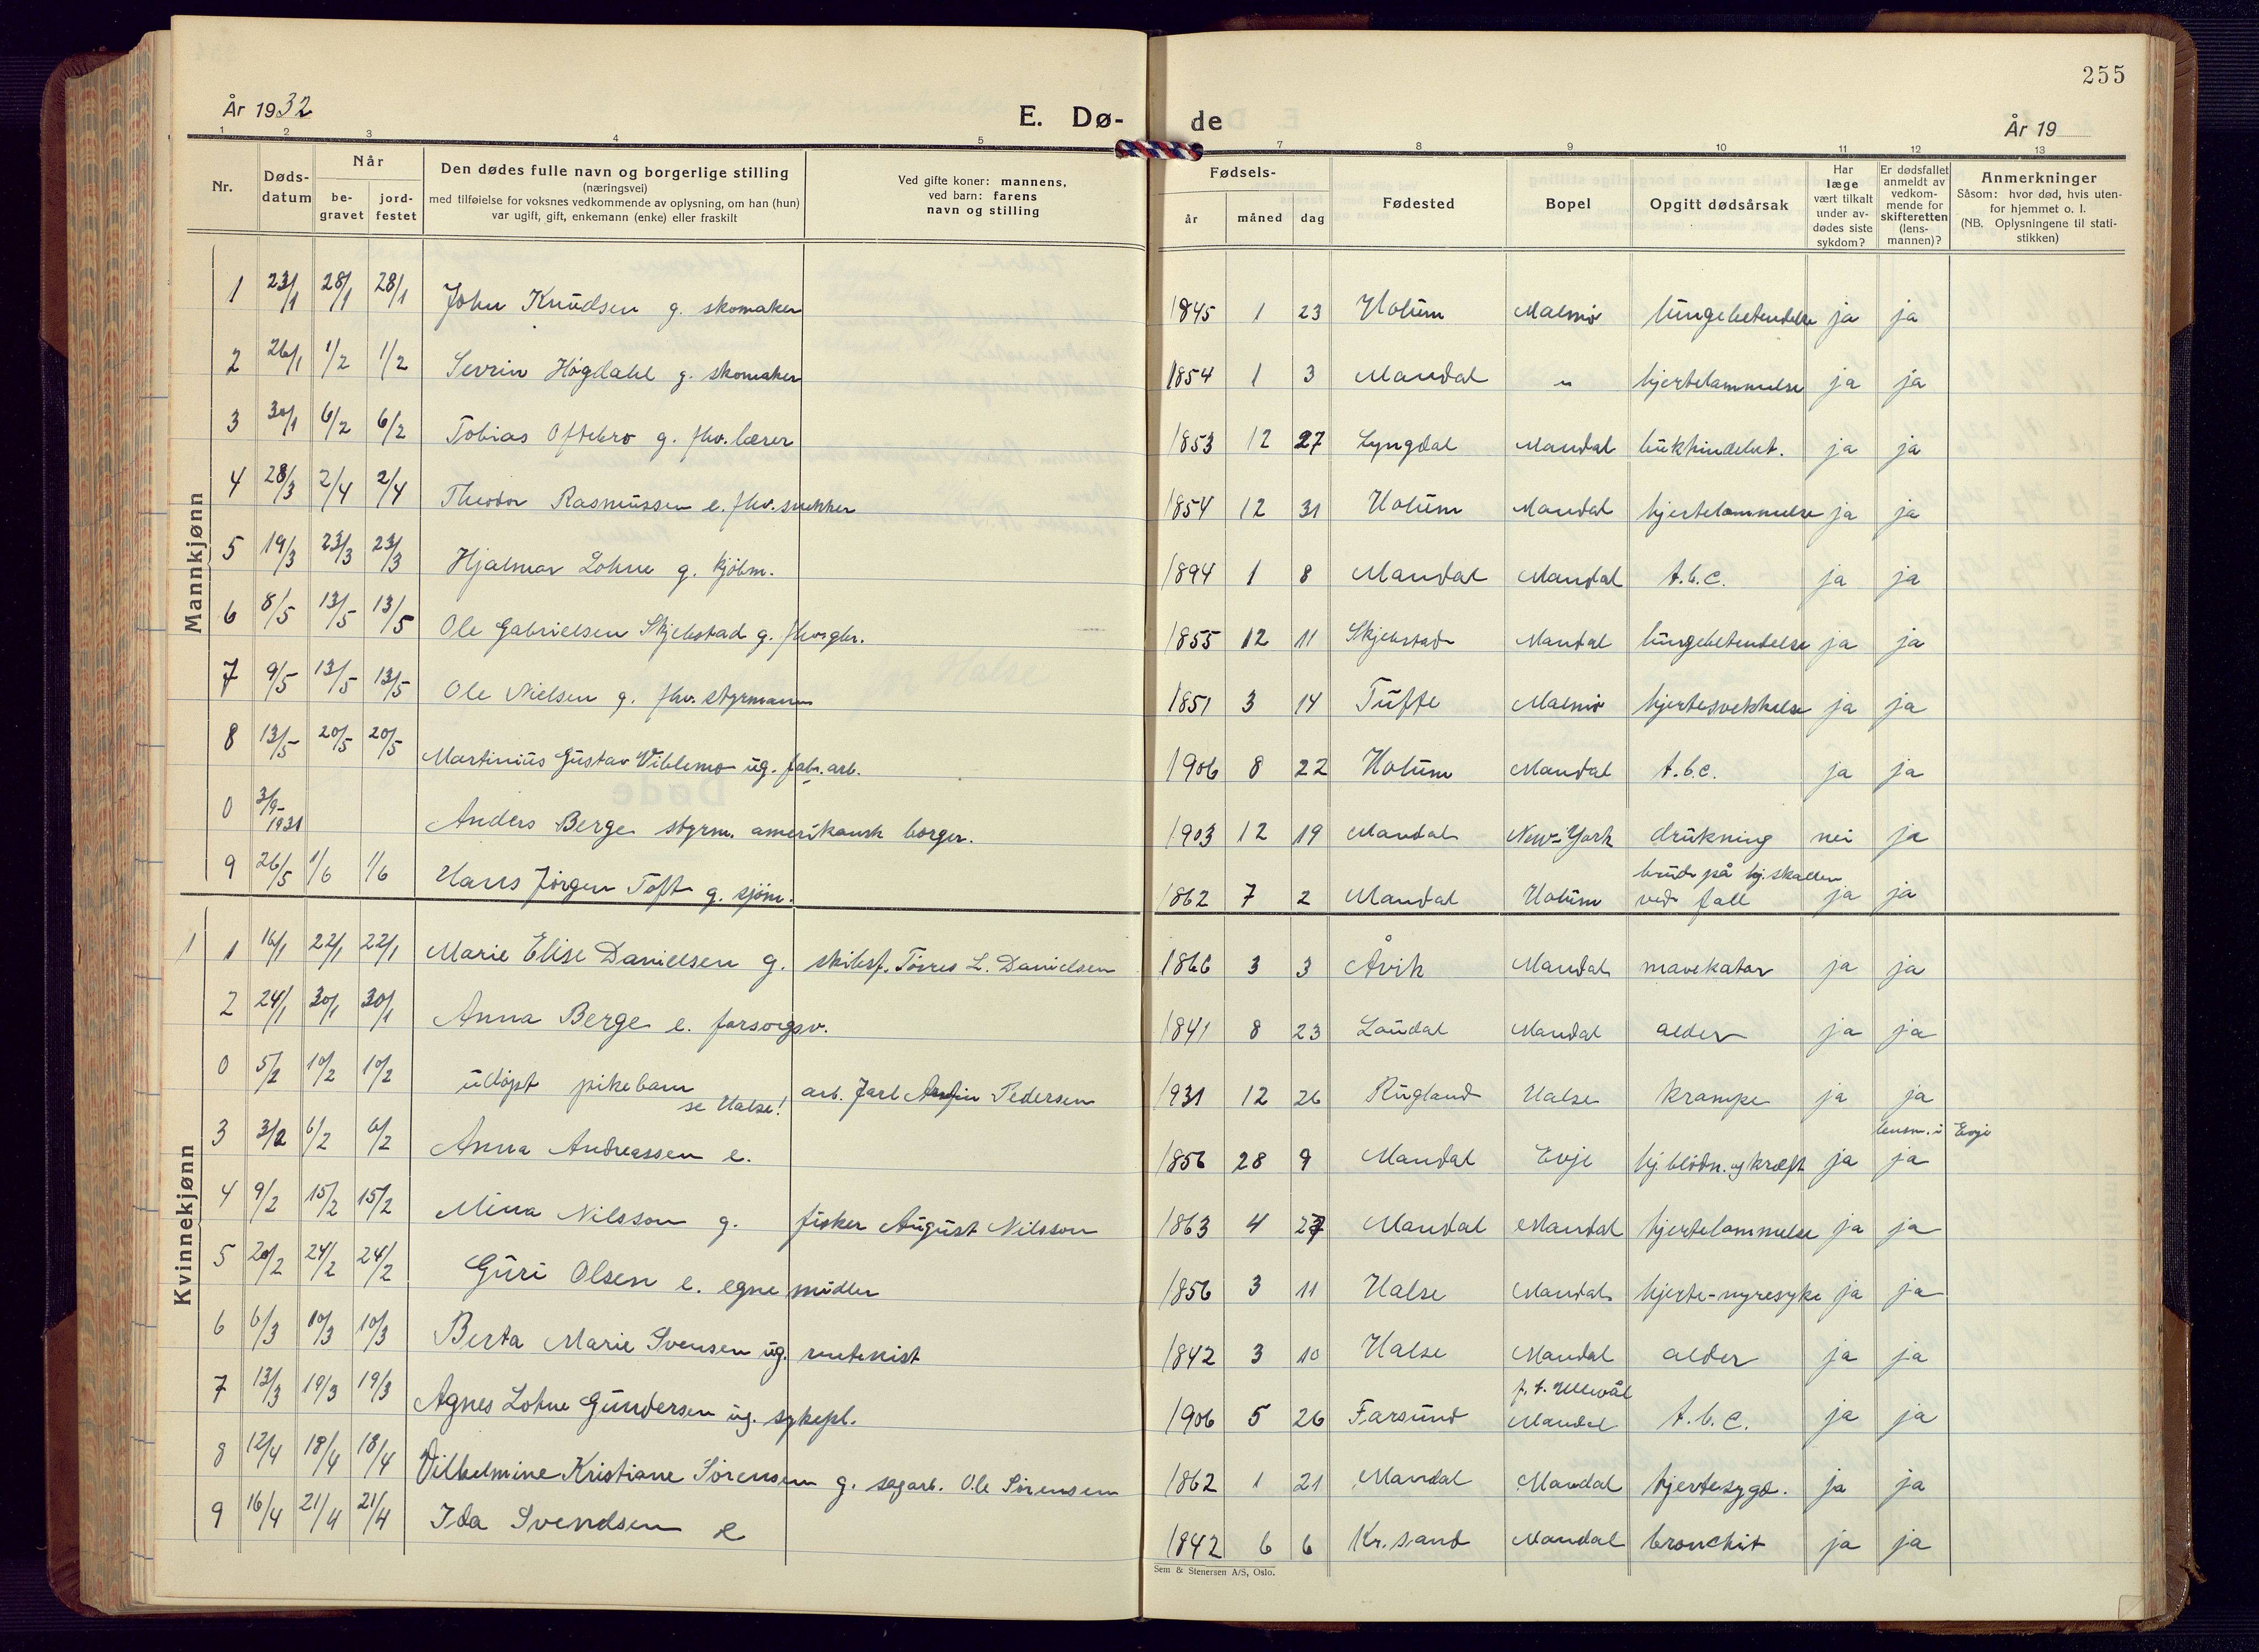 255
År 1932
E. Dø-
de
År 19
1 2 3 4 5 7 8 9 10 11 12 13
Nr.
Døds-
datum
Når
be-
gravet
jord-
festet
Den dødes fulle navn og borgerlige stilling
(næringsvei)
med tilføielse for voksnes vedkommende av oplysning, om han (hun)
var ugift, gift, enkemann (enke) eller fraskilt
Ved gifte koner: mannens,
ved barn: farens
navn og stilling
Fødsels-
år måned dag
Fødested
Bopel
Opgitt dødsårsak
Har
læge
vært tilkalt
under av-
dødes siste
sykdom?
Er dødsfallet
anmeldt av
vedkom-
mende for
skifteretten
(lens-
mannen)?
Anmerkninger
Såsom: hvor død, hvis uten-
for hjemmet o. l.
(NB. Oplysningene til stati-
stikken)
Mannkjønn
1 23/1 28/1 28/1 John Knudsen g. skomaker 1845 1 23 Holum Malmø lungebetendelse ja ja
2 26/1 1/2 1/2 Sevrin Høgdahl g. skomaker 1854 1 3 Mandal " hjertelammelse ja ja
3 30/1 6/2 6/2 Tobias Oftebro g. fhv. lærer 1853 12 27 Lyngdal Mandal bukhindebet. ja ja
4 28/3 2/4 2/4 Theodor Rasmussen e. fhv. snekker 1854 12 31 Holum Mandal hjertelammelse ja ja
5 19/3 23/3 23/3 Hjalmar Lohne g. kjøbm. 1894 1 8 Mandal Mandal t.b.c. ja ja
6 8/5 13/5 13/5 Ole Gabrielsen Skjebstad g. fhv. gbr. 1855 12 11 Skjebstad Mandal lungebetendelse ja ja
7 9/5 13/5 13/5 Ole Nielsen g. fhv. styrmann 1851 3 14 Tufte Malmø hjertesvekkelse ja ja
8 13/5 20/5 20/5 Martinius Gustav Viblemo ug. fabr. arb. 1906 8 22 Holum Mandal t.b.c. ja ja
0 3/9-1931 Anders Berge styrm. amerikansk borger. 1903 12 19 Mandal New-York drukning nei ja
9 26/5 1/6 1/6 Hans Jørgen Toft g. sjøm. 1862 7 2 Mandal Holum brudd på hj. skallen
ved fall ja ja
Kvinnekjønn
1 1 16/1 22/1 22/1 Marie Elise Danielsen g. skibsf. Tørres L. Danielsen 1866 3 3 Åvik Mandal mavekatar ja ja
2 24/1 30/1 30/1 Anna Berge e. forsorgsv. 1841 8 23 Laudal Mandal alder ja ja
0 5/2 10/2 10/2 udøpt pikebarn arb. Jarl Pedersen 1931 12 26 Rugland Halse krampe ja ja
se Halse!
lensm. i Evje
3 3/2 6/2 6/2 Anna Andreassen e. 1856 28 9 Mandal Evje hj. blødn. og kræft ja ja
4 9/2 15/2 15/2 Mina Nilsson g. fisker August Nilsson 1863 4 27 Mandal Mandal hjertelammelse ja ja
5 20/2 24/2 24/2 Guri Olsen e. egne midler 1856 3 11 Halse Mandal hjerte-nyresyke ja ja
6 6/3 10/3 10/3 Berta Marie Svensen ug. rentenist 1842 3 10 Halse Mandal alder ja ja
f. t. Ullevål
7 13/3 19/3 19/3 Agnes Lohne Gundersen ug. sykepl. 1906 5 26 Farsund Mandal t.b.c. ja ja
8 12/4 18/4 18/4 Vilhelmine Kristiane Sørensen g. sagarb. Ole Sørensen 1862 1 21 Mandal Mandal hjertesygd. ja ja
9 16/4 21/4 21/4 Ida Svendsen e 1842 6 6 Kr. sand Mandal bronchit ja ja
Sem & Stenersen A/S, Oslo.